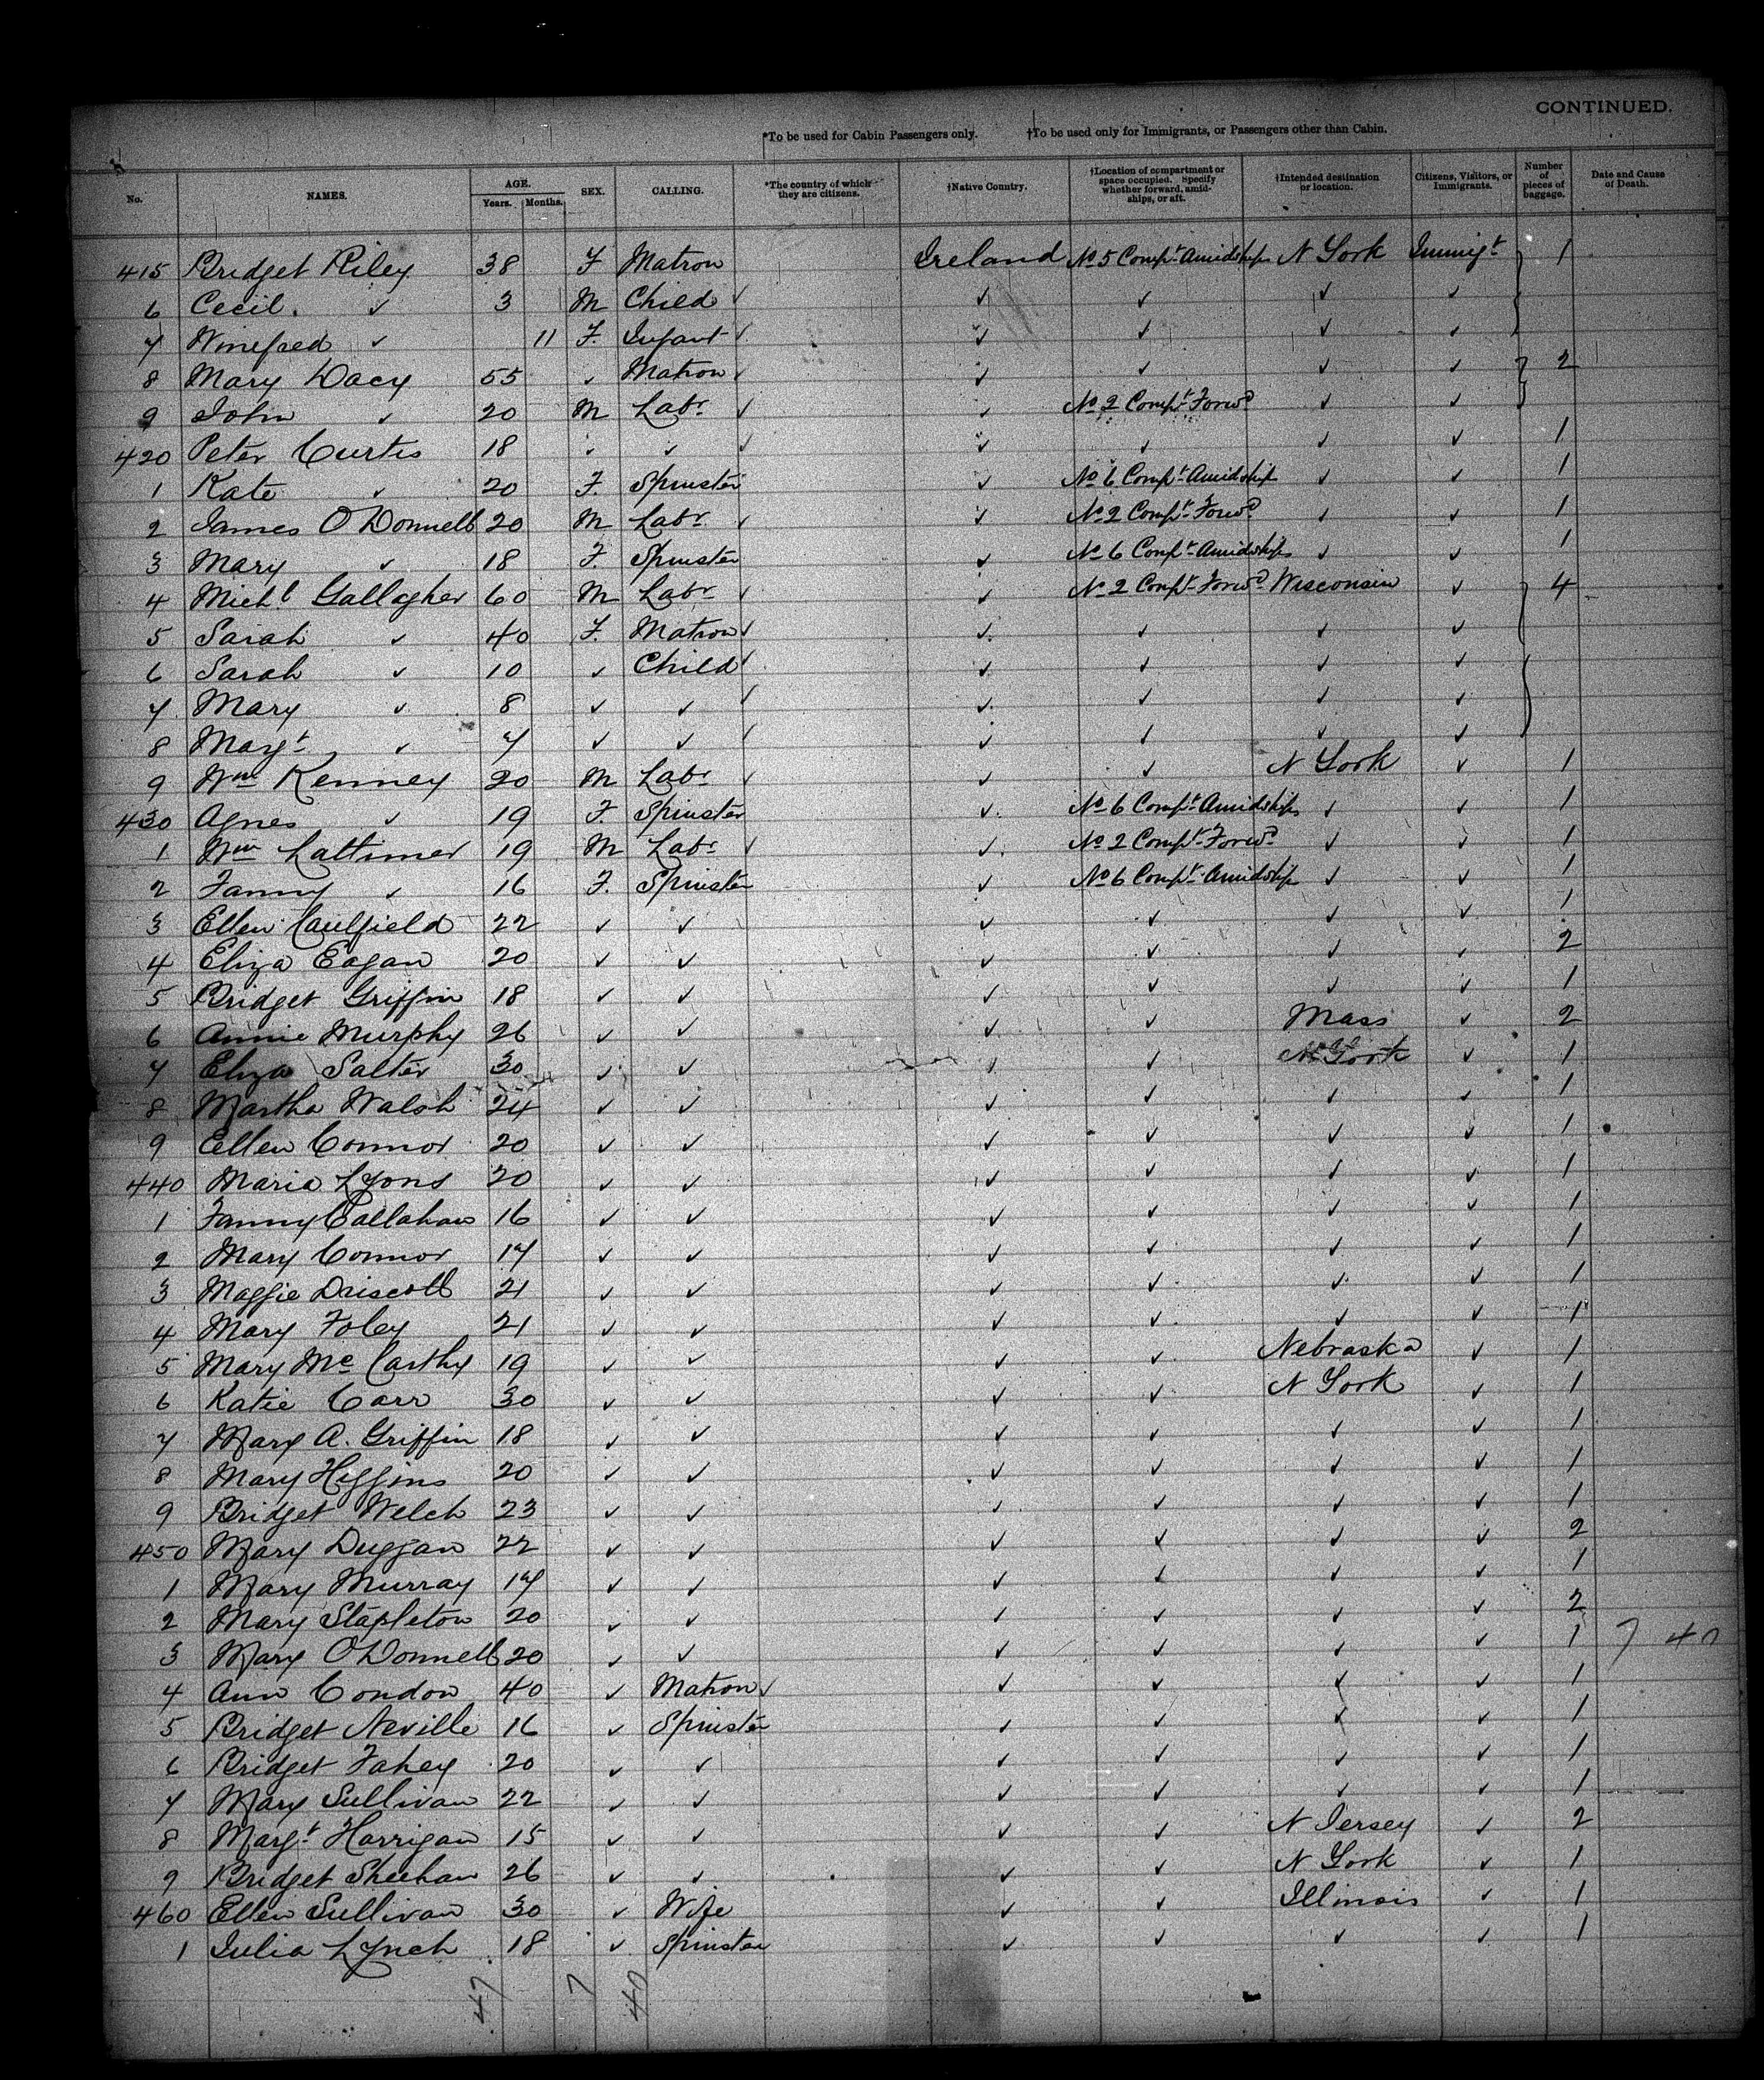 CONTINUED.
*To be used for Cabin Passengers only. †To be used only for Immigrants, or Passengers other than Cabin.
No. NAMES. AGE. Years. Months. SEX. CALLING. *The country of which they are citizens. †Native Country. †Location of compartment or space occupied. Specify whether forward, amidships, or aft. †Intended destination or location. Citizens, Visitors, or Immigrants. Number of pieces of baggage. Date and Cause of Death.
415 Bridget Riley 38 F Matron Ireland No 5 Compt Amidships N York Immigt 1
6 Cecil. ✓ 3 M Child ✓ ✓ ✓ ✓ ✓
7 Winefred ✓ 11 F. Infant ✓ ✓ ✓ ✓ ✓
8 Mary Dacy 55 ✓ Matron ✓ ✓ ✓ ✓ ✓ 2
9 John ✓ 20 M Labr ✓ ✓ No 2 Compt Forwd ✓ ✓
420 Peter Curtis 18 ✓ ✓ ✓ ✓ ✓ ✓ ✓ 1
1 Kate ✓ 20 F. Spinster ✓ No 6 Compt Amidship ✓ ✓ 1
2 James O'Donnell 20 M Labr ✓ ✓ No 2 Compt Forwd ✓ ✓ 1
3 Mary ✓ 18 F. Spinster ✓ No 6 Compt Amidships ✓ ✓ 1
4 Michl Gallagher 60 M Labr ✓ ✓ No 2 Compt Forwd Wisconsin ✓ 4
5 Sarah ✓ 40 F. Matron ✓ ✓ ✓ ✓ ✓
6 Sarah ✓ 10 ✓ Child ✓ ✓ ✓ ✓ ✓
7 Mary ✓ 8 ✓ ✓ ✓ ✓ ✓ ✓ ✓
8 Margt ✓ 7 ✓ ✓ ✓ ✓ ✓ ✓ ✓
9 Wm Kenney 20 M Labr ✓ ✓ ✓ N York ✓ 1
430 Agnes ✓ 19 F. Spinster ✓ No 6 Compt Amidships ✓ ✓ 1
1 Wm Lattimer 19 M Labr ✓ ✓ No 2 Compt Forwd ✓ ✓ 1
2 Fanny ✓ 16 F. Spinster ✓ No 6 Compt Amidship ✓ ✓ 1
3 Ellen Caulfield 22 ✓ ✓ ✓ ✓ ✓ ✓ 1
4 Eliza Eagan 20 ✓ ✓ ✓ ✓ ✓ ✓ 2
5 Bridget Griffin 18 ✓ ✓ ✓ ✓ ✓ ✓ 1
6 Annie Murphy 26 ✓ ✓ ✓ ✓ Mass ✓ 2
7 Eliza Salter 30 ✓ ✓ ✓ ✓ N York ✓ 1
8 Martha Walsh 24 ✓ ✓ ✓ ✓ ✓ ✓ 1
9 Ellen Connor 20 ✓ ✓ ✓ ✓ ✓ ✓ 1
440 Maria Lyons 20 ✓ ✓ ✓ ✓ ✓ ✓ 1
1 Fanny Callahan 16 ✓ ✓ ✓ ✓ ✓ ✓ 1
2 Mary Connor 17 ✓ ✓ ✓ ✓ ✓ ✓ 1
3 Maggie Driscoll 21 ✓ ✓ ✓ ✓ ✓ ✓ 1
4 Mary Foley 21 ✓ ✓ ✓ ✓ ✓ ✓ 1
5 Mary Mc Carthy 19 ✓ ✓ ✓ ✓ Nebraska ✓ 1
6 Katie Carr 30 ✓ ✓ ✓ ✓ N York ✓ 1
7 Mary A. Griffin 18 ✓ ✓ ✓ ✓ ✓ ✓ 1
8 Mary Higgins 20 ✓ ✓ ✓ ✓ ✓ ✓ 1
9 Bridget Welch 23 ✓ ✓ ✓ ✓ ✓ ✓ 1
450 Mary Duggan 22 ✓ ✓ ✓ ✓ ✓ ✓ 2
1 Mary Murray 17 ✓ ✓ ✓ ✓ ✓ ✓ 1
2 Mary Stapleton 20 ✓ ✓ ✓ ✓ ✓ ✓ 2
3 Mary O'Donnell 20 ✓ ✓ ✓ ✓ ✓ ✓ 1 7 40
4 Ann Condon 40 ✓ Matron ✓ ✓ ✓ ✓ ✓ 1
5 Bridget Neville 16 ✓ Spinster ✓ ✓ ✓ ✓ 1
6 Bridget Fahey 20 ✓ ✓ ✓ ✓ ✓ ✓ 1
7 Mary Sullivan 22 ✓ ✓ ✓ ✓ ✓ ✓ 1
8 Margt Harrigan 15 ✓ ✓ ✓ ✓ N Jersey ✓ 2
9 Bridget Sheehan 26 ✓ ✓ ✓ ✓ N York ✓ 1
460 Ellen Sullivan 30 ✓ Wife ✓ ✓ Illinois ✓ 1
1 Julia Lynch 18 ✓ Spinster ✓ ✓ ✓ ✓ 1
47 7 40